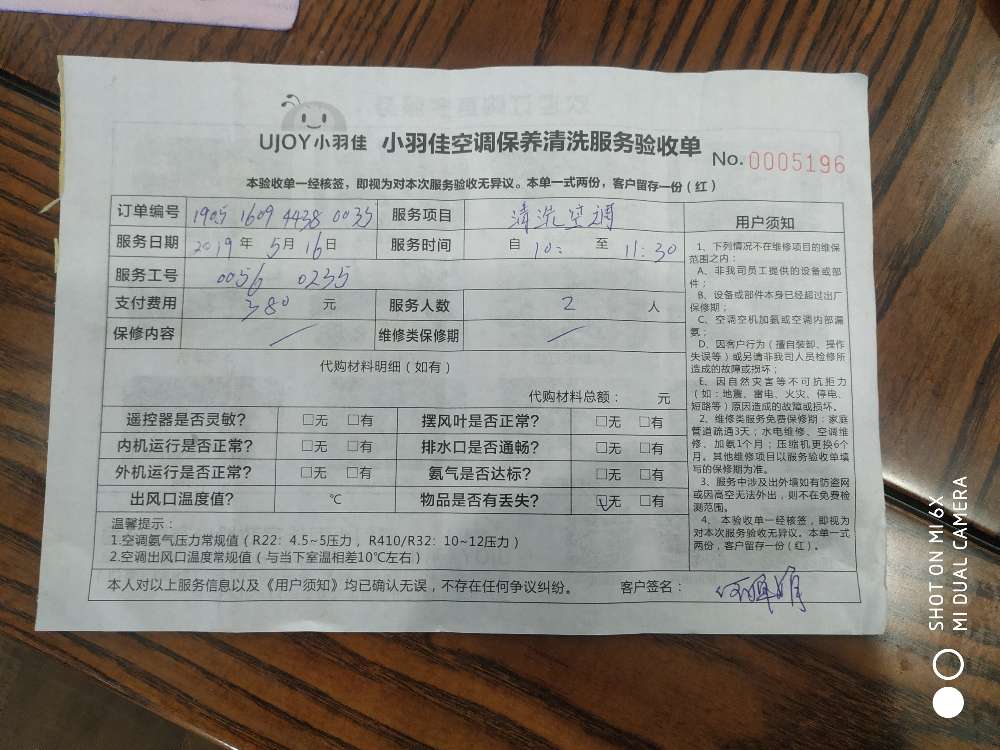 UJOY小羽佳 小羽佳空调保养清洗服务验收单 No.0005196
本验收单一经核签，即视为对本次服务验收无异议。本单一式两份，客户留存一份（红）
订单编号 1905 1609 4438 0035 服务项目 清洗空调
服务日期 2019年5月16日 服务时间 自 10: 至 11:30
服务工号 0056 0235
支付费用 380 元 服务人数 2 人
保修内容 / 维修类保修期 /
代购材料明细（如有）
代购材料总额： 元
遥控器是否灵敏? □无 □有 摆风叶是否正常? □无 □有
内机运行是否正常? □无 □有 排水口是否通畅? □无 □有
外机运行是否正常? □无 □有 氨气是否达标? □无 □有
出风口温度值? ℃ 物品是否有丢失? ☑无 □有
温馨提示：
1.空调氨气压力常规值（R22：4.5~5压力，R410/R32：10~12压力）
2.空调出风口温度常规值（与当下室温相差10℃左右）
本人对以上服务信息以及《用户须知》均已确认无误，不存在任何争议纠纷。 客户签名：
用户须知
1、下列情况不在维修项目的维保
范围之内：
A、非我司员工提供的设备或部
件；
B、设备或部件本身已经超过出厂
保修期；
C、空调空机加氨或空调内部漏
氨；
D、因客户行为（擅自装卸、操作
失误等）或另请非我司人员检修所
造成的故障或损坏；
E、因自然灾害等不可抗拒力
（如：地震、雷电、火灾、停电、
短路等）原因造成的故障或损坏。
2、维修类服务免费保修期：家庭
管道疏通3天；水电维修、空调维
修、加氨1个月；压缩机更换6个
月。其他维修项目以服务验收单填
写的保修期为准。
3、服务中涉及出外墙如有防盗网
或因高空无法外出，则不在免费检
测范围。
4、本验收单一经核签，即视为
对本次服务验收无异议。本单一式
两份，客户留存一份（红）。
SHOT ON MI 6X
MI DUAL CAMERA